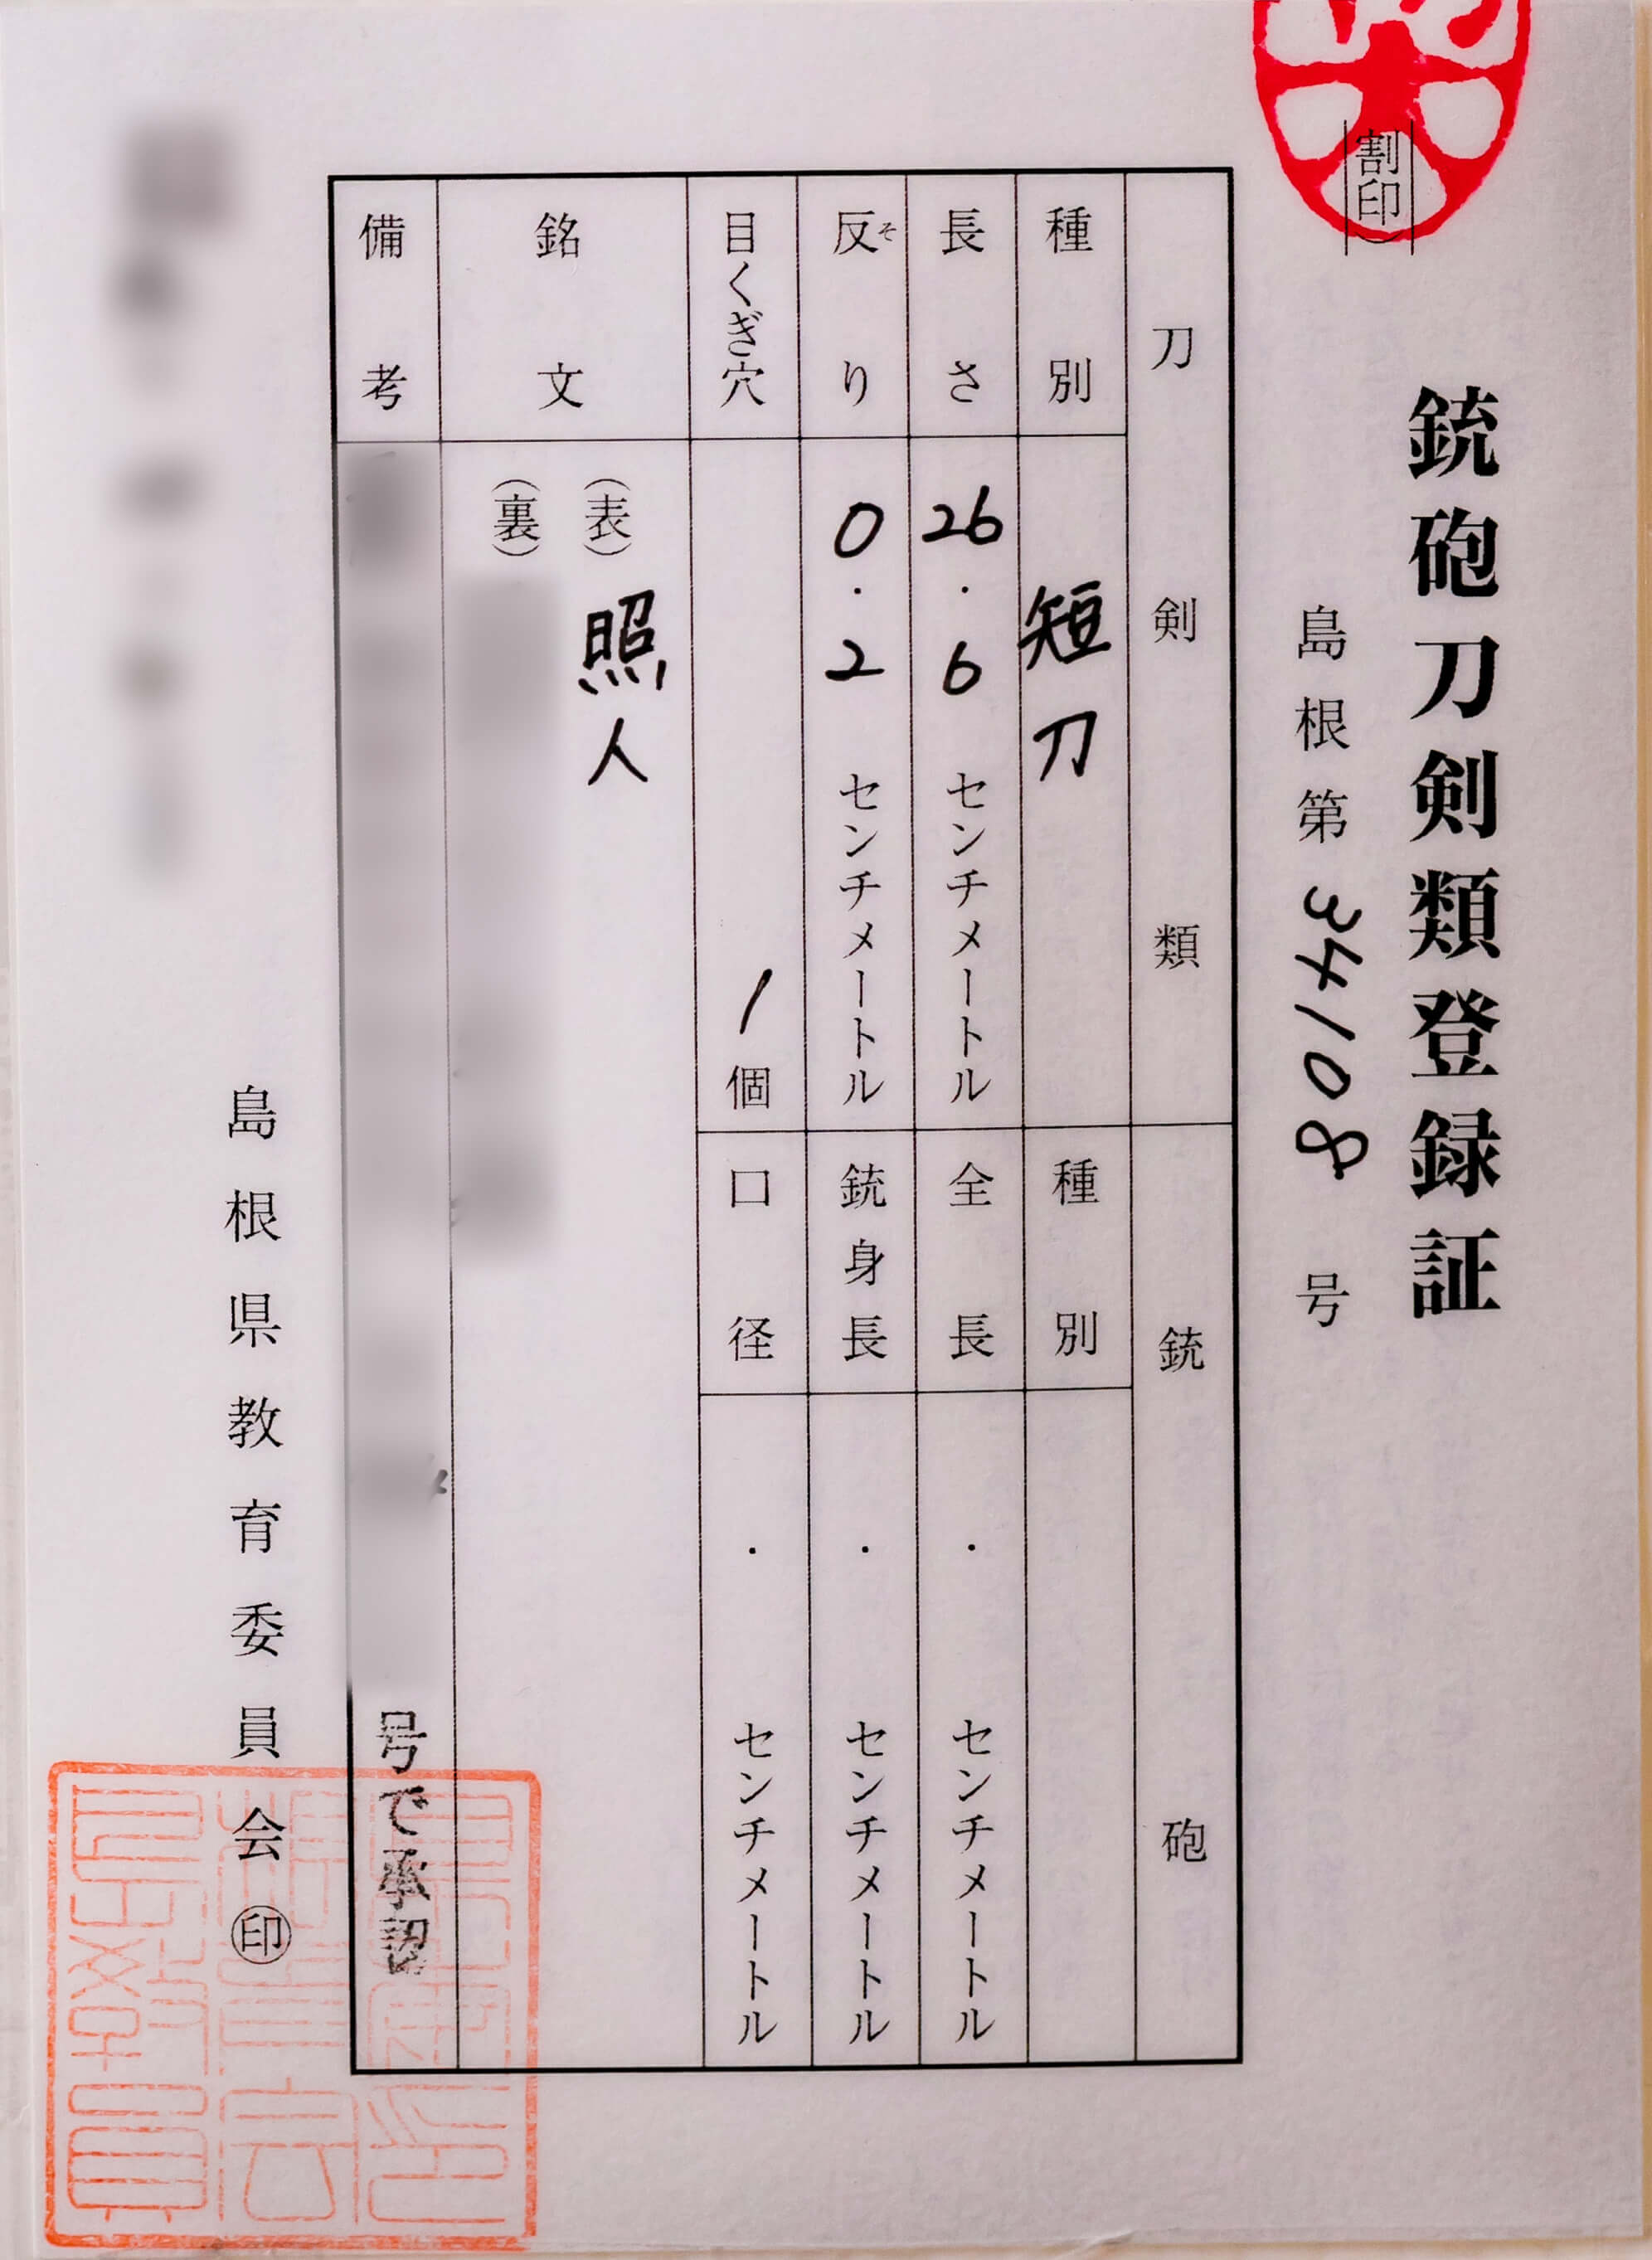 銃砲刀剣類登録証
(割印)
島根第34108号
刀剣類
銃砲
種別
短刀
種別
長さ
26.6センチメートル
全長
.センチメートル
反り
そ
0.2センチメートル
銃身長
.センチメートル
目くぎ穴
1個
口径
.センチメートル
銘文
(表)照人
(裏)
備考
号で承認
島根県教育委員会㊞